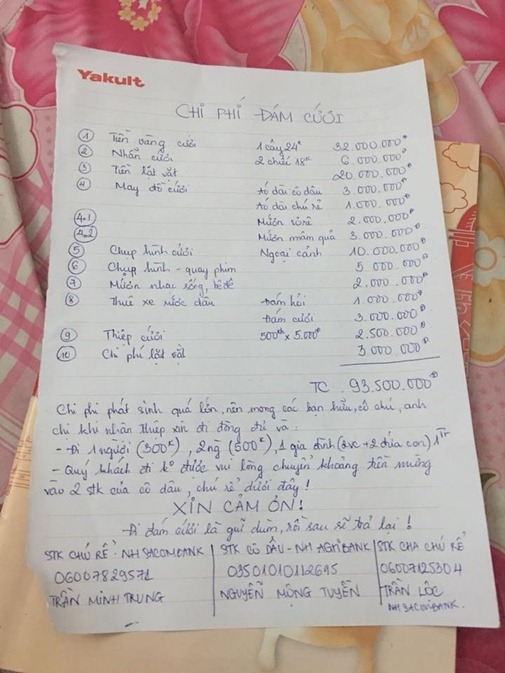 Yakult
CHI PHÍ ĐÁM CƯỚI
1 Tiền vàng cưới 1 cây 24K 32.000.000đ
2 Nhẫn cưới 2 chiếc 18K 6.000.000đ
3 Tiền lặt vặt 20.000.000đ
4 May đồ cưới Áo dài cô dâu 3.000.000đ
Áo dài chú rể 1.000.000đ
4.1 Mướn 2.000.000đ
4.2 Mướn mâm quả 3.000.000đ
5 Chụp hình cưới Ngoại cảnh 10.000.000đ
6 Chụp hình - quay phim 5.000.000đ
7 Mướn nhạc sống, 2.000.000đ
8 Thuê xe rước dâu Đám hỏi 1.000.000đ
Đám cưới 3.000.000đ
9 Thiệp cưới 500 x 5.000đ 2.500.000đ
10 Chi phí lặt vặt 3.000.000đ
TC 93.500.000đ
Chi phí phát sinh quá lớn, nên mong các bạn hữu, cô chú, anh
chị khi nhận thiệp xin đi đông đủ và:
- Đi 1 người (300K), 2ng (500K), 1 gia đình (2vc + 2 đứa con) 1Tr
- Quý khách đi ko được vui lòng chuyển khoảng tiền mừng
vào 2 stk của cô dâu, chú rể dưới đây!
XIN CẢM ƠN!
Đi đám cưới là gửi dùm, rồi sau sẽ trả lại!
STK CHÚ RỂ - NH SACOMBANK STK CÔ DÂU - NH AGRIBANK STK CHA CHÚ RỂ
TRẦN MINH TRUNG NGUYỄN MỘNG TUYỀN TRẦN LỘC
NH SACOMBANK.